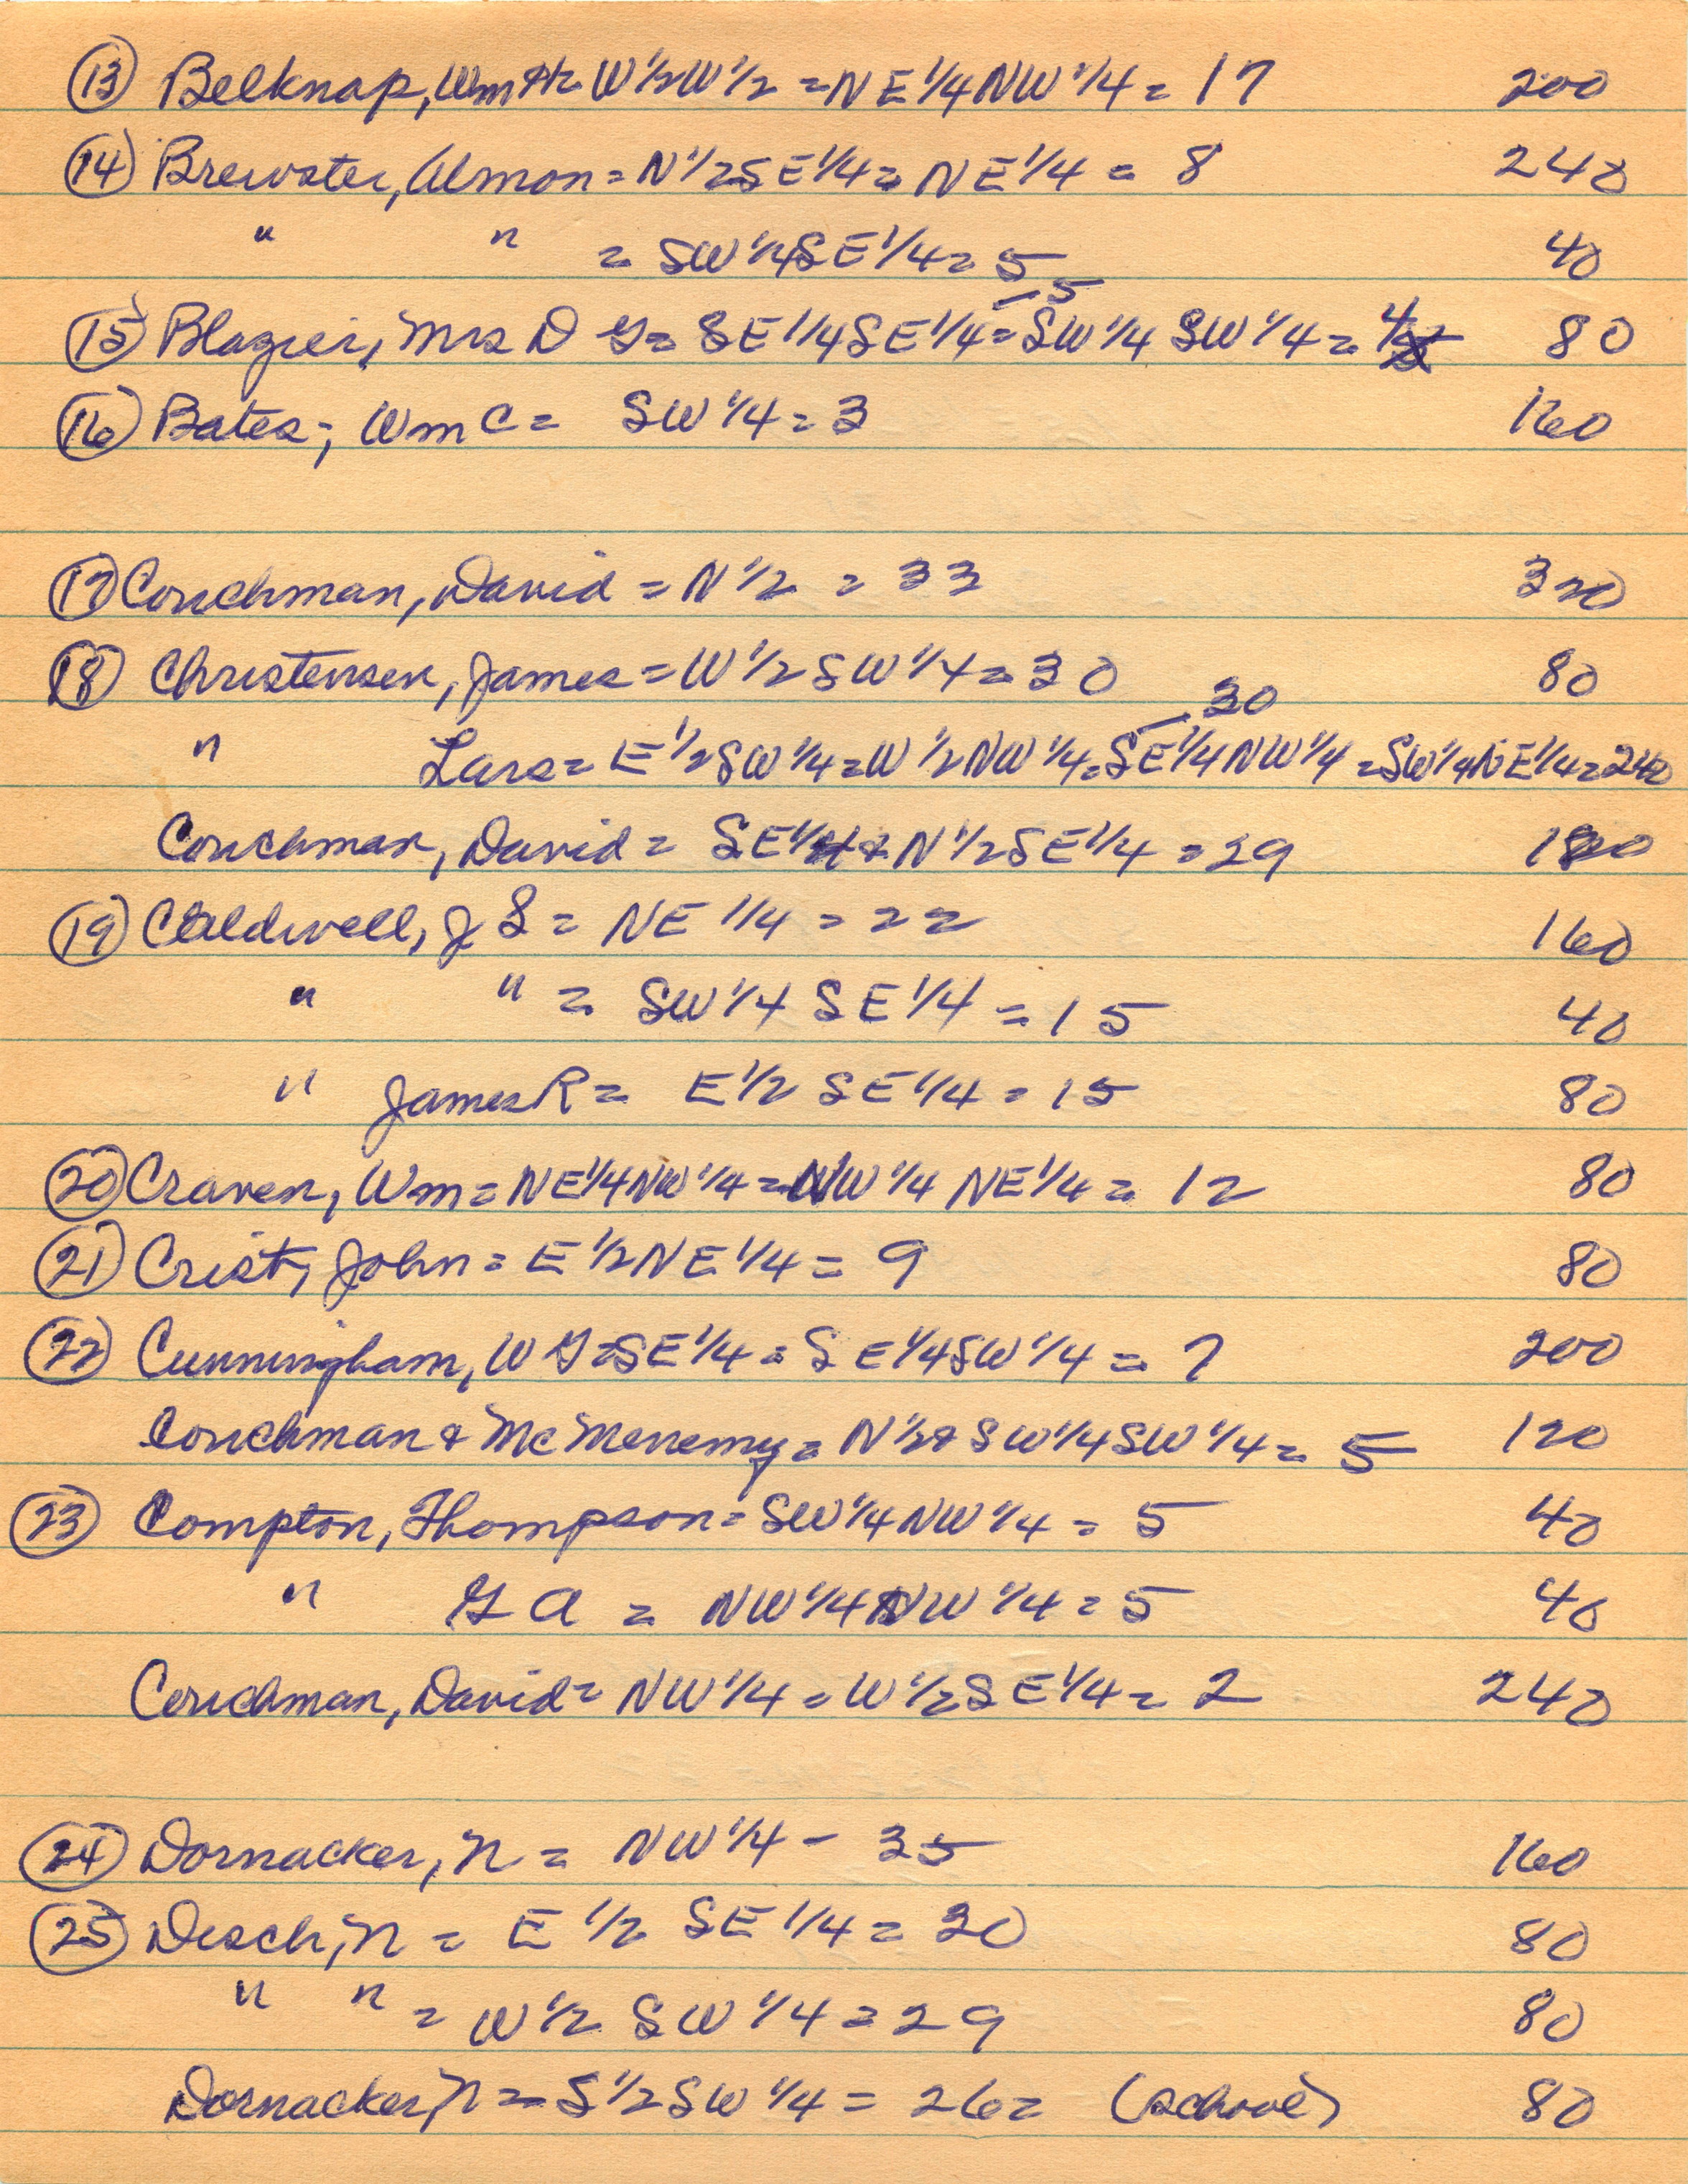 (13) Belknap, Wm H = W 1/2 W 1/2 = NE 1/4 NW 1/4 = 17 200
(14) Brewster, Almon = N 1/2 SE 1/4 = NE 1/4 = 8 240
" " = SW 1/4 SE 1/4 = 5 40
5
(15) Blazier, Mrs D G = SE 1/4 SE 1/4 = SW 1/4 SW 1/4 = 4 80
(16) Bates, Wm C = SW 1/4 = 3 160
(17) Couchman, David = N 1/2 = 33 320
(18) Christensen, James = W 1/2 SW 1/4 = 30 80
30
" Lars = E 1/2 SW 1/4 = W 1/2 NW 1/4 = SE 1/4 NW 1/4 = SW 1/4 NE 1/4 = 240
Couchman, David = SE 1/4 & N 1/2 SE 1/4 = 29
(19) Caldwell, J S = NE 1/4 = 22 160
" " = SW 1/4 SE 1/4 = 15 40
" James R = E 1/2 SE 1/4 = 15 80
(20) Craven, Wm = NE 1/4 NW 1/4 = NW 1/4 NE 1/4 = 12 80
(21) Crist, John = E 1/2 NE 1/4 = 9 80
(22) Cunningham, W G = SE 1/4 = SE 1/4 SW 1/4 = 7 200
Couchman & McMenemy = N 1/2 & SW 1/4 SW 1/4 = 5 120
(23) Compton, Thompson = SW 1/4 NW 1/4 = 5 40
" G A = NW 1/4 NW 1/4 = 5 40
Couchman, David = NW 1/4 = W 1/2 SE 1/4 = 2 240
(24) Dornacker, N = NW 1/4 - 35 160
(25) Desch, N = E 1/2 SE 1/4 = 30 80
" " = W 1/2 SW 1/4 = 29 80
Dornacker, N = S 1/2 SW 1/4 = 26 = (school) 80